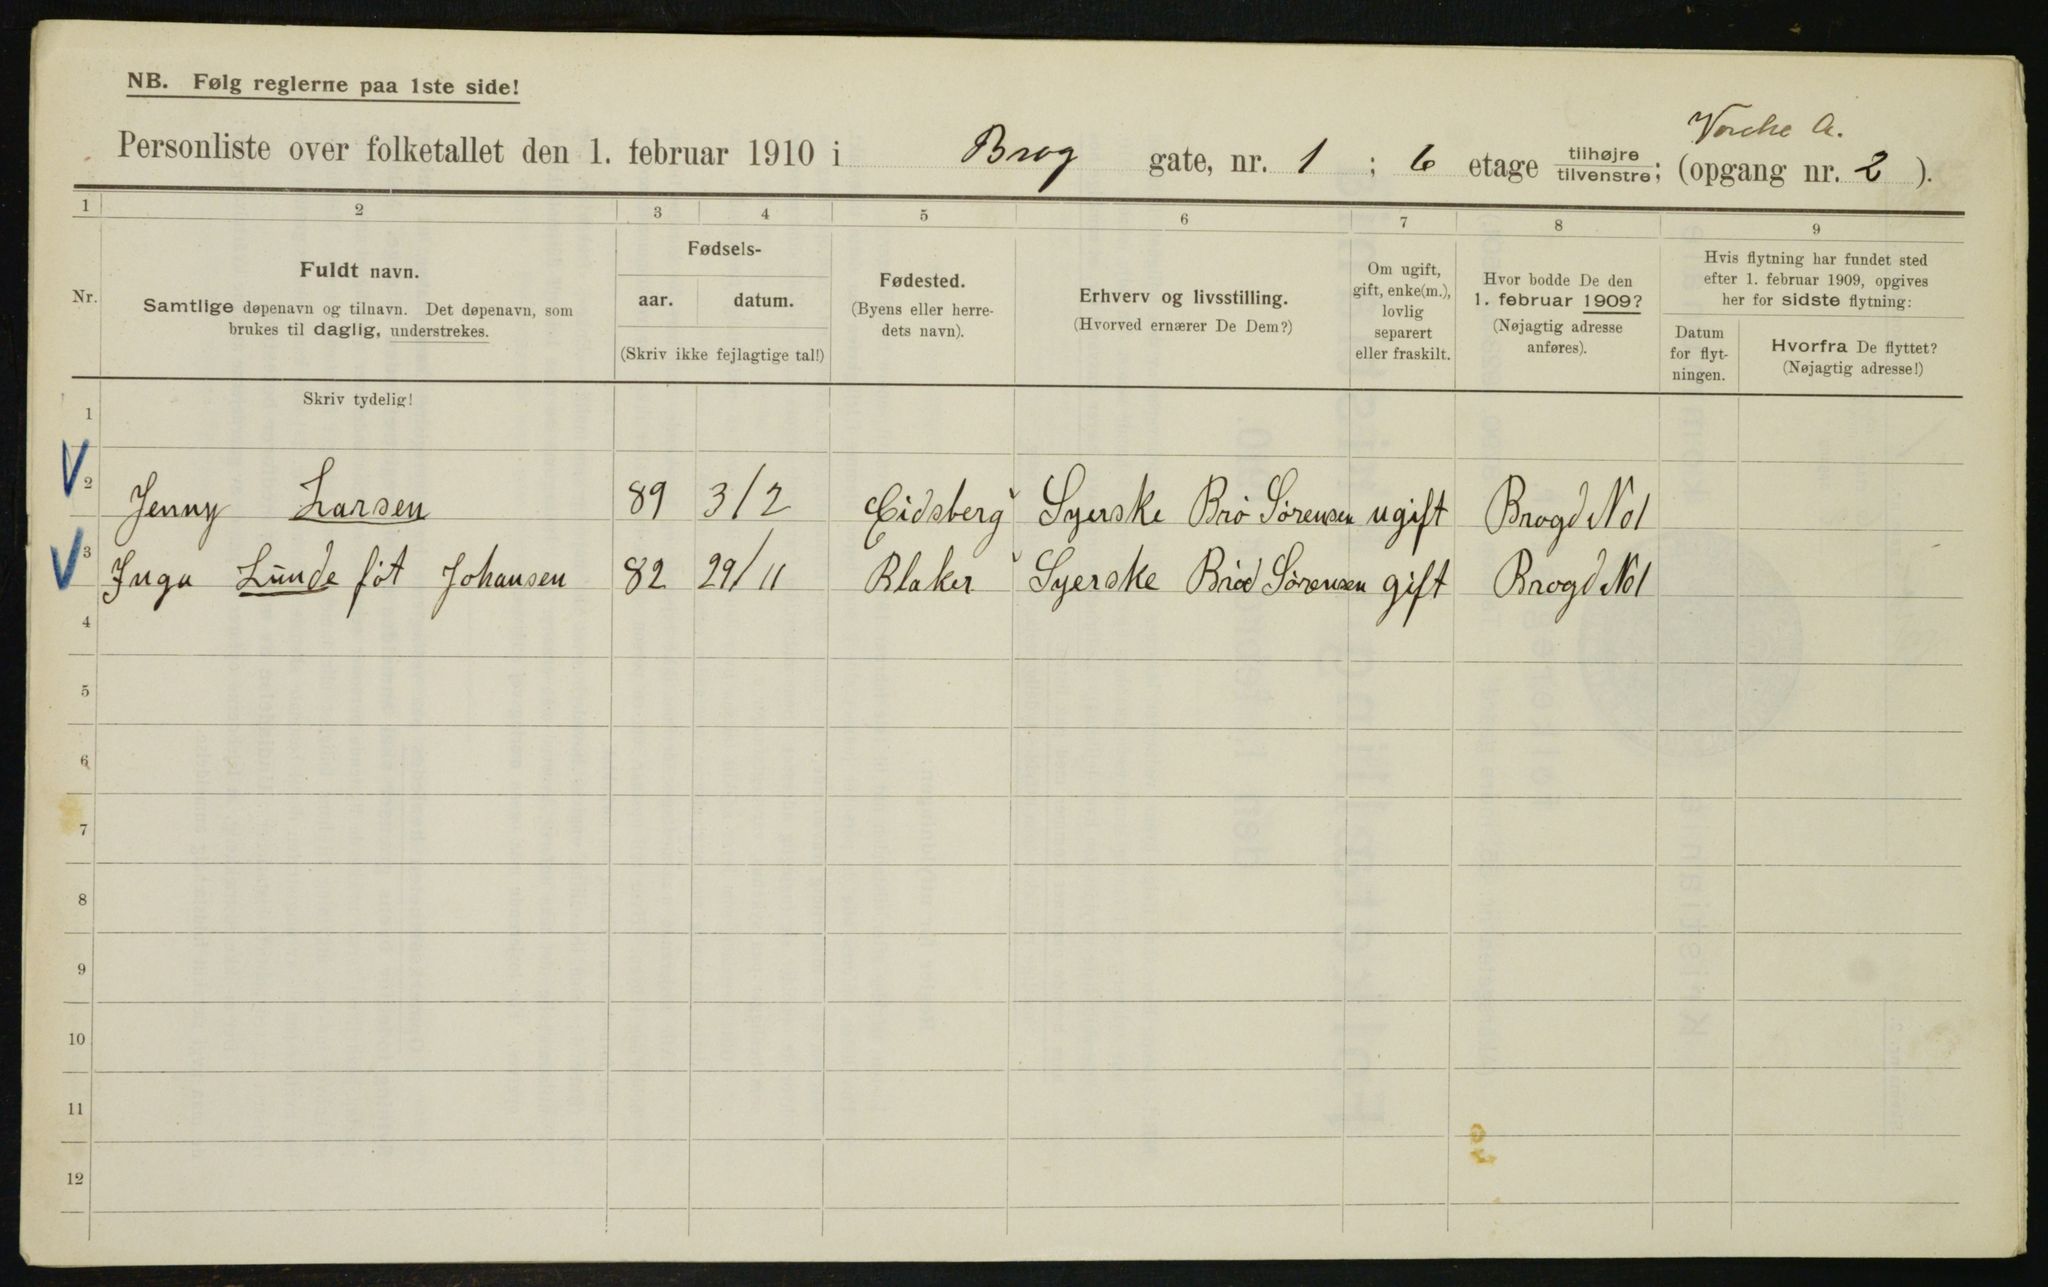 NB. Følg reglerne paa 1ste side!
A.
Personliste over folketallet den 1. februar 1910 i Brog gate, nr. 1 ; 6 etage tilhøjre tilvenstre; (opgang nr. 2 ).
1 2 3 4 5 6 7 8 9
Nr.
Fuldt navn.
Samtlige døpenavn og tilnavn. Det døpenavn, som
brukes til daglig, understrekes.
Fødsels-
aar. datum.
(Skriv ikke fejlagtige tal!)
Fødested.
(Byens eller herre-
dets navn).
Erhverv og livsstilling.
(Hvorved ernærer De Dem?)
Om ugift,
gift, enke(m.),
lovlig
separert
eller fraskilt.
Hvor bodde De den
1. februar 1909?
(Nøjagtig adresse
anføres).
Hvis flytning har fundet sted
efter 1. februar 1909, opgives
her for sidste flytning:
Datum
for flyt-
ningen.
Hvorfra De flyttet?
(Nøjagtig adresse!)
Skriv tydelig!
1
2 Jenny Larsen 89 3/2 Eidsberg Syerske Brø Sørensen ugift Brogd No 1
3 Inga Lunde føt Johansen 82 29/11 Blaker Syerske Brød Sørensen gift Brogd No 1
4
5
6
7
8
9
10
11
12